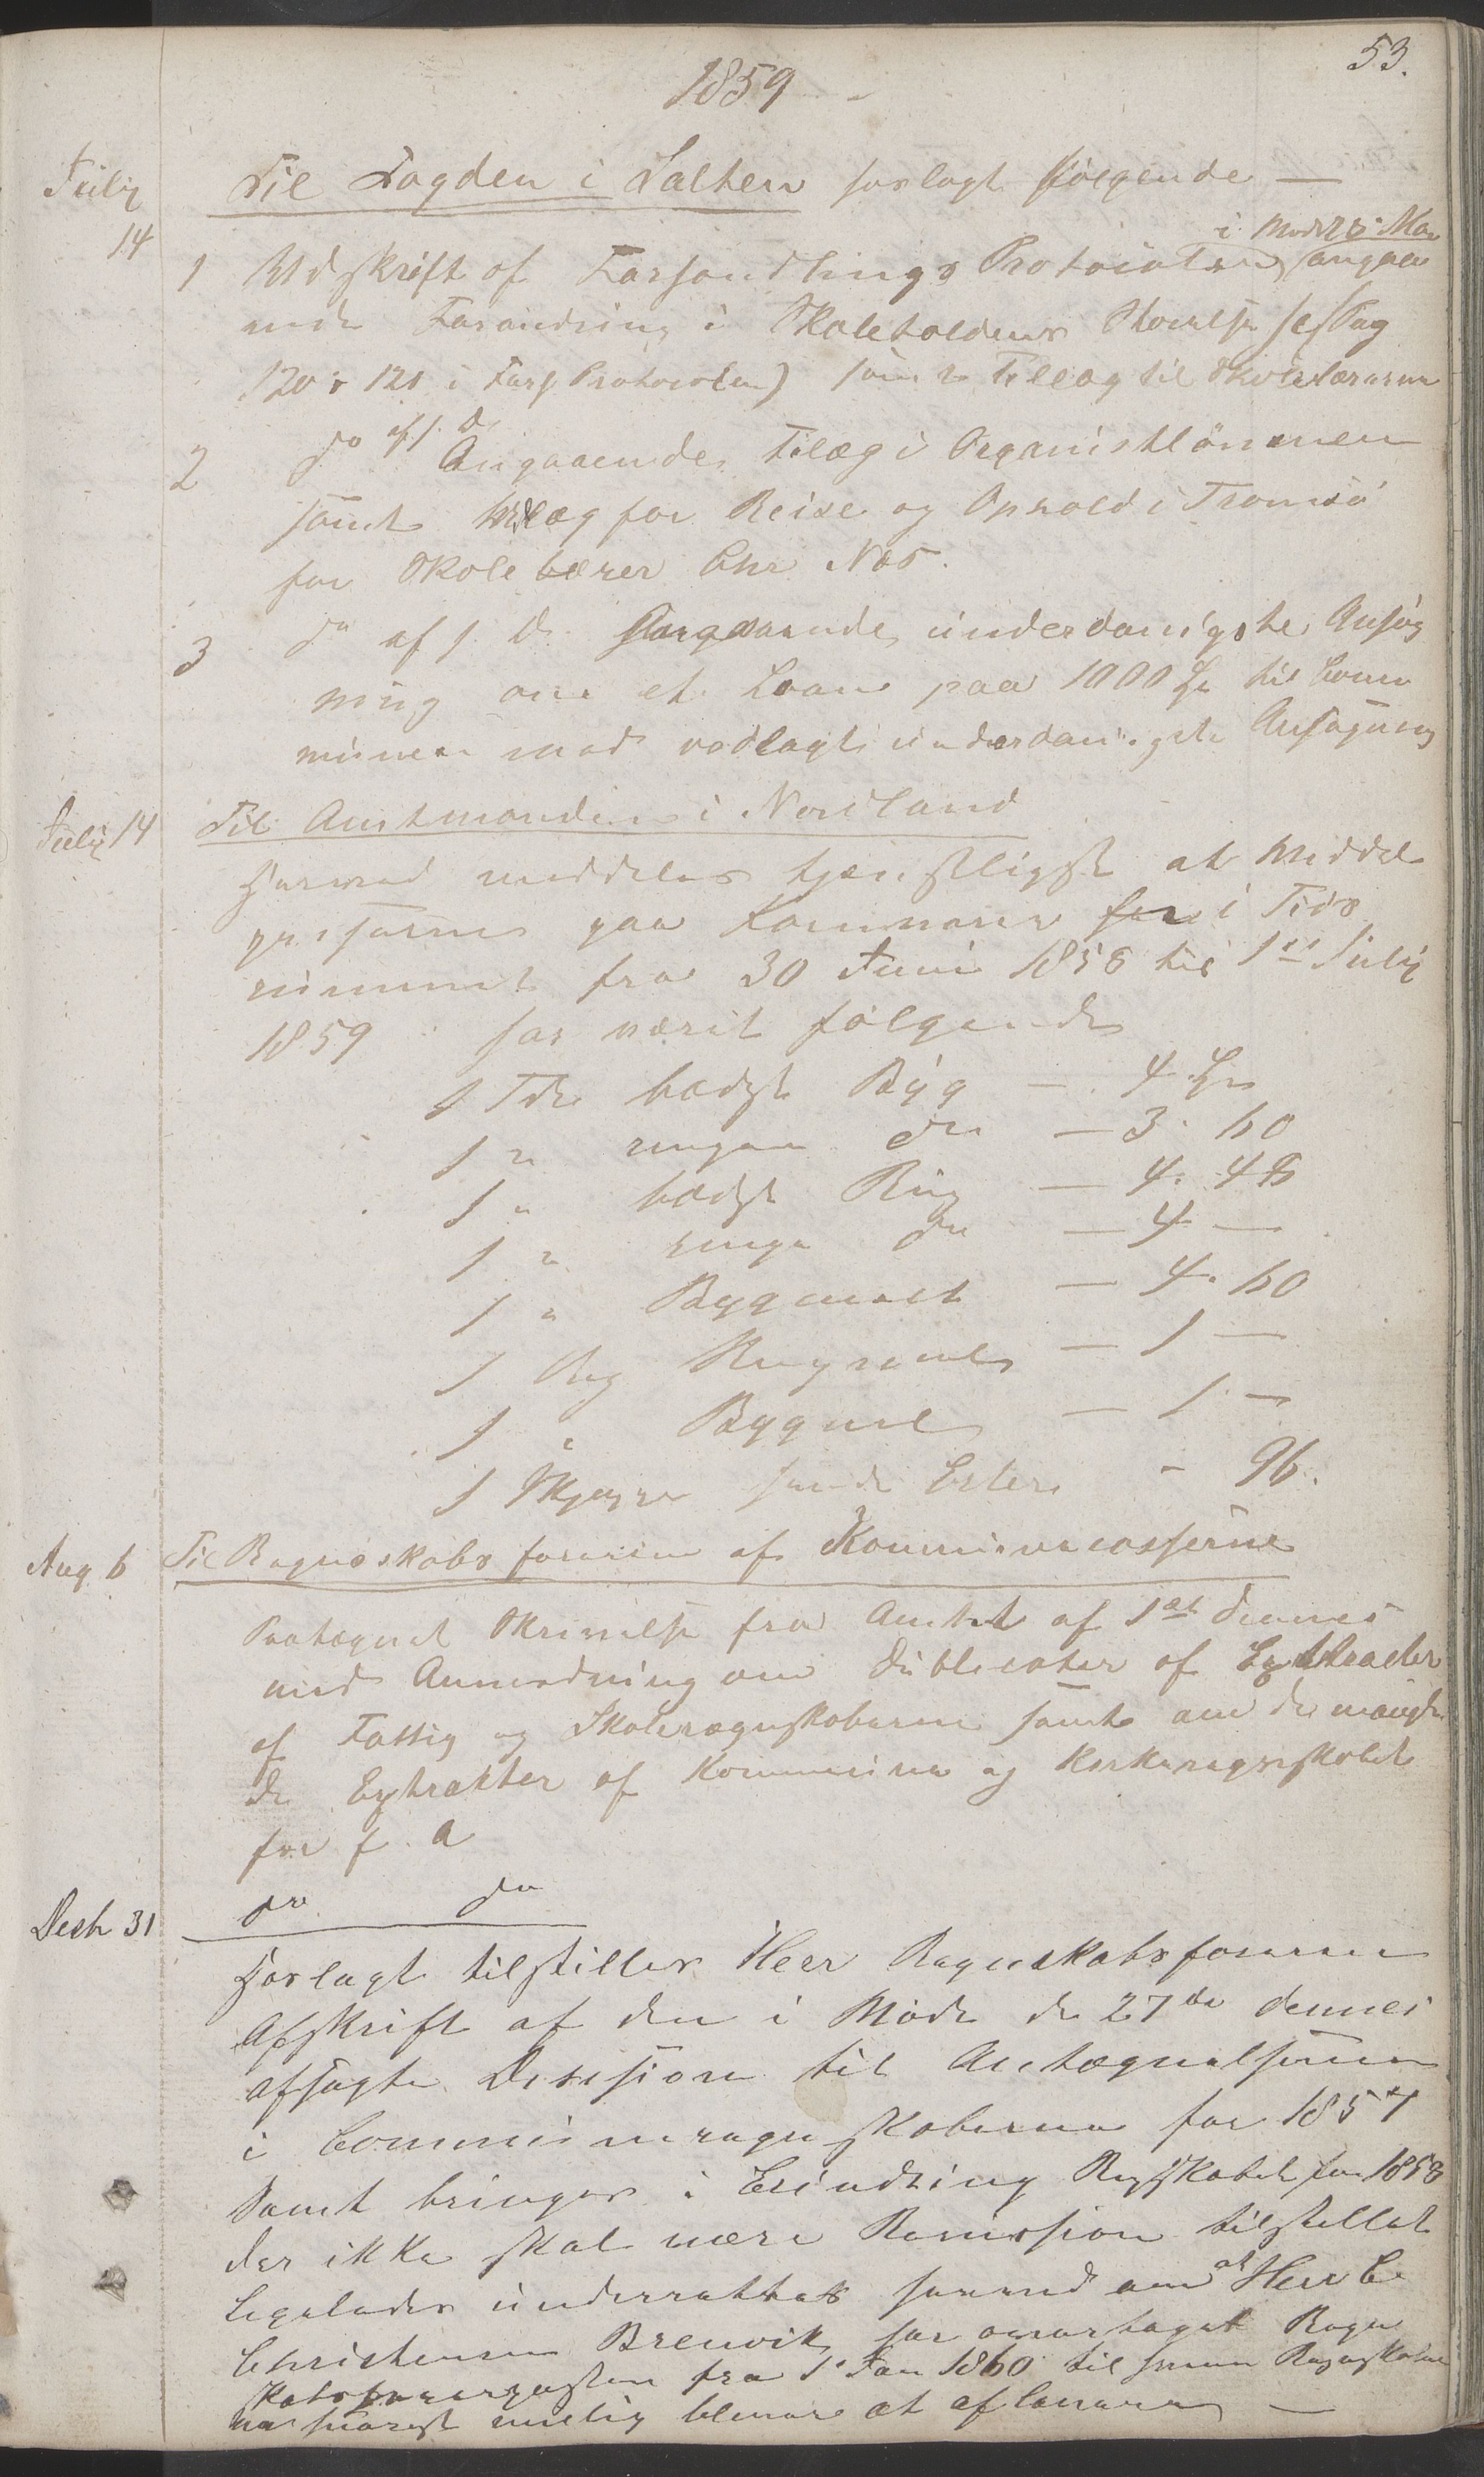 53.
1859
July
14
Til Fogden i Salten forlagt følgende —
i Møde 28 Mai
1 Udskrift af Forhandlings Protocollen angaa
ende Forandring i Skoleholdens Størrelse se Pag
120 & 121 i Forh Protocolen) samt Tillæg til Skolelærerne
2 do af f. D. Angaaende Tilæg i Organistlönnen
samt Udlæg for Reise og Ophold i Tromsö
for Skolelærer Chr Næs.
3 do af f. D. Angaaende underdanigste Ansøg
ning om et Laan paa 1000 Spd til Com
munen med vedlagt underdanigste Ansøgning
July 14
Til Amtmanden i Nordland
Herved meddeles tjenstligst at Middel
priserne paa Kornvarer i Tids
rummet fra 30 Juni 1858 til 1ste July
1859 har værit følgende
1 Tde bedste Byg — 4 Spd
1 " ringere do — 3. 60
1 " bedste Rug — 4. 48
1 " ringe do — 4 —
1 " Bygmalt — 4. 60
1 Vog Rugmel — 1 —
1 " Bygmel — 1. —
1 Skjeppe Erter - 96.
Aug 6
Til Regneskabsføreren af Kommunecasserne
Paategnet Skrivelse fra Amtet af 1st dennes
med Anmodning om Dublicater af Extracter
af Fattig og Skoleregnskaberne samt om de manglen
de Extrakter af Kommune og Kirkeregnskabet
for f. A
Decbr 31
do do
Forlagt tilstilles Herr Regnskabsføreren
Afskrift af den i Møde de 27de dennes
afsagte Decision til Antegnelserne
i Communeregnskaberne for 1857
Samt bringes i Erindring Regnskabet for 1858
der ikke skal være Revision tilstillet
Ligeledes underrettes herved om at Herr C.
Christensen Brenvik har overtaget Regn
skabsførerposten fra 1 Jan 1860 til hvem Regnskaberne
snarest muelig blever at aflevere —